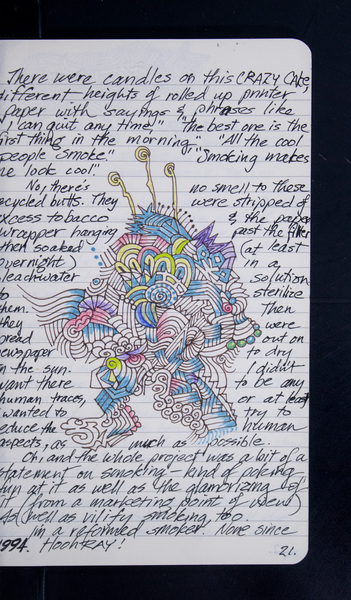 There were candles on this CRAZY CAKE,
different heights of rolled up printer
paper with sayings & phrases like
"I can quit any time," "the best one is the
first thing in the morning." "All the cool
people smoke." "Smoking makes
me look cool."
No, there's no smell to these
recycled butts. They were stripped of
excess tobacco & the paper
wrapper hanging past the filter
then soaked (at least
overnight) in a
bleach water solution
to sterilize
them. Then
they were
spread out on
newspaper to dry
in the sun. I didn't
want there to be any
human traces, or at least
I wanted to try to
reduce the human
aspects, as much as possible.
Oh and the whole project was a bit of a
statement on smoking - kind of poking
fun at it as well as the glamorizing of
it (from a marketing point of view)
As well as vilify smoking too.
I'm a reformed smoker. None since
1994. HOOHRAY!
21.